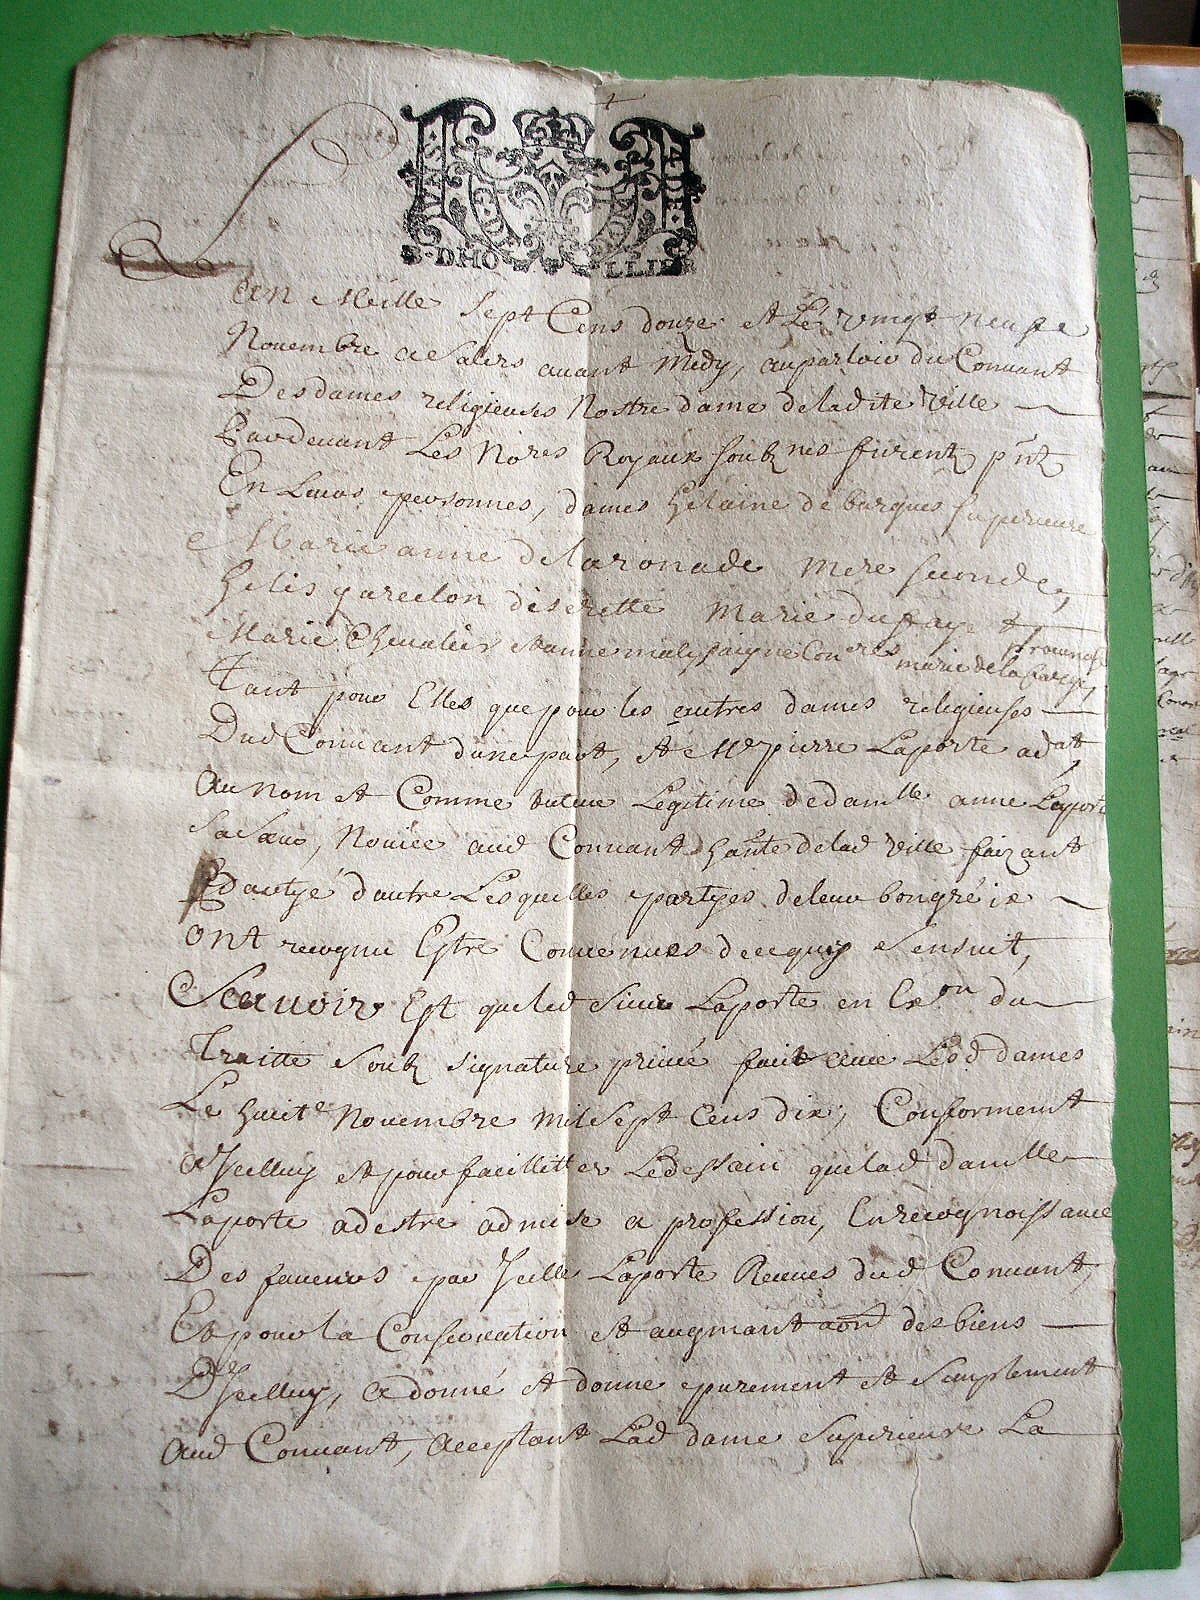 S·DHO LLIER
Lan Meille Sept Cens douze et Le vingt neufe
Nouembre a Salers auant Midy, au parloir du Conuant
Des dames religieuses Nostre dame de ladite ville
Pardeuant Les Nores Royaux soubz nes furent pnt
En Leurs personnes, dames helaine de bargues superieure
Marie anne de laronade mere seconde,
helis discrette Marie dufayet
Marie Cheualier
marie de la farge
Tant pour Elles que pour les autres dames religieuses
Dud Conuant dune part, et Me pierre Laporte adat,
au nom et Comme tuteur Legitime de damlle anne Laporte
sa sœur, Nouice aud Conuant hante de lad ville faizant
dautye dautre Lesquelles partyes de leur bongré ix
ont recognu Estre Conuenues de ce quy Sensuit,
Scauoir Est que led Sieur Laporte en Exon du
Traitte Soubz signature priué fait auec Lesd dames
Le huite Nouembre mil sept Cens dix, Conforment
a Jcelluy et pour facillitter Le dessain que lad damlle
Laporte a destre admise a profession, En recognoissance
Des faueurs par Jcelle Laporte Receues dud Conuant,
Et pour la Conseruation et augmantaon des biens
DJcelluy, a donné et donne purement et simplement
aud Conuant, acceptant Lad dame superieure La